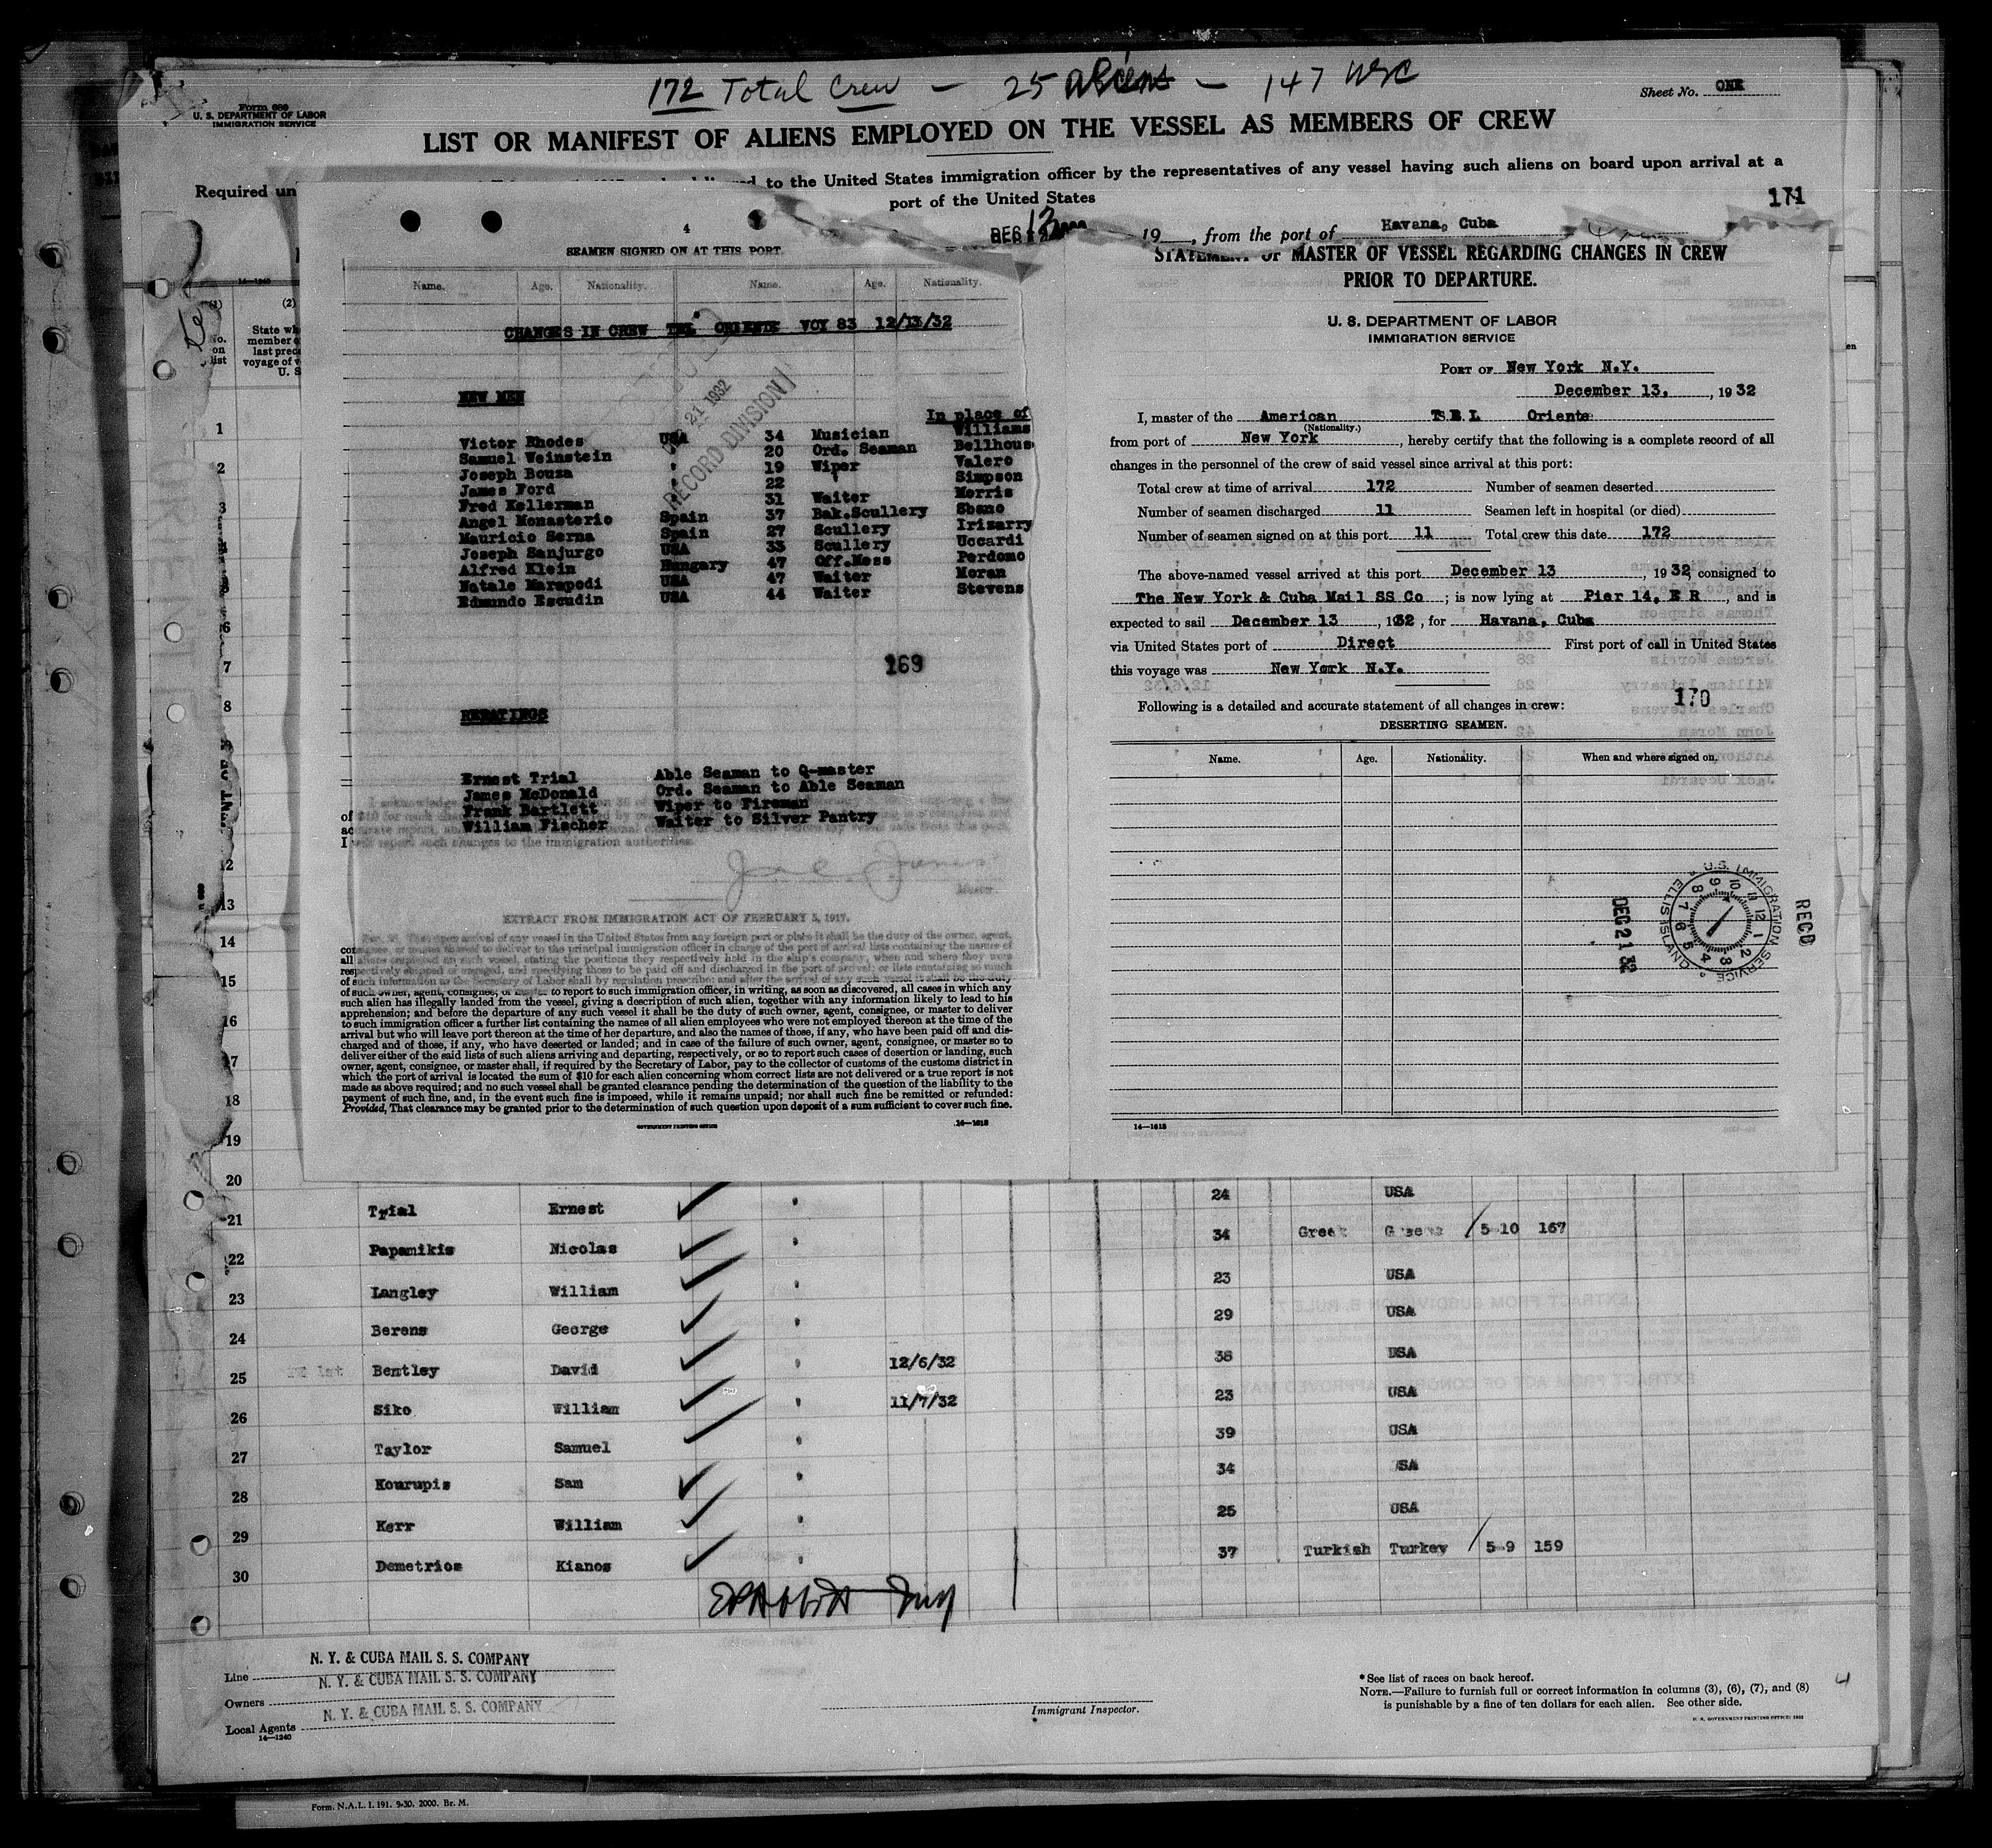 172 Total Crew - 25 aliens - 147 USC
Sheet No. ONE
Form 680
U. S. DEPARTMENT OF LABOR
IMMIGRATION SERVICE
LIST OR MANIFEST OF ALIENS EMPLOYED ON THE VESSEL AS MEMBERS OF CREW
Required un
to the United States immigration officer by the representatives of any vessel having such aliens on board upon arrival at a
port of the United States
171
DEC 13
19 , from the port of Havana, Cuba
14-1240
(1) (2)
No. on list
State wh
member o
last prece
voyage of v
U. S
4
SEAMEN SIGNED ON AT THIS PORT.
Name. Age. Nationality. Name. Age. Nationality.
CHANGES IN CREW TEL ORIENTE VOY 83 12/13/32
DEC 21 1932
RECORD DIVISION
NEW MEN
In place of
Victor Rhodes USA 34 Musician Williams
Samuel Weinstein " 20 Ord. Seaman Bellhous
Joseph Bouza " 19 Wiper Valero
James Ford " 22 " Simpson
Fred Kellerman " 31 Waiter Morris
Angel Monasterio Spain 37 Bak.Scullery Sbano
Mauricio Serna Spain 27 Scullery Irizarry
Joseph Sanjurgo USA 33 Scullery Uccardi
Alfred Klein Hungary 47 Off.Mess Perdomo
Natale Marapodi USA 47 Waiter Moran
Edmundo Escudin USA 44 Waiter Stevens
169
RERATINGS
Ernest Trial Able Seaman to Q-master
James McDonald Ord. Seaman to Able Seaman
Frank Bartlett Wiper to Fireman
William Fischer Waiter to Silver Pantry
I will report such changes to the immigration authorities.
Master.
EXTRACT FROM IMMIGRATION ACT OF FEBRUARY 5, 1917.
upon arrival of any vessel in the United States from any foreign port or place it shall be the duty of the owner, agent,
consignee, or master thereof to deliver to the principal immigration officer in charge of the port of arrival lists containing the names of
all aliens employed on such vessel, stating the positions they respectively hold in the ship's company, when and where they were
respectively shipped or engaged, and specifying those to be paid off and discharged in the port of arrival; or lists containing so much
of such information as the Secretary of Labor shall by regulation prescribe; and after the arrival of any such vessel it shall be the duty
of such owner, agent, consignee, or master to report to such immigration officer, in writing, as soon as discovered, all cases in which any
such alien has illegally landed from the vessel, giving a description of such alien, together with any information likely to lead to his
apprehension; and before the departure of any such vessel it shall be the duty of such owner, agent, consignee, or master to deliver
to such immigration officer a further list containing the names of all alien employees who were not employed thereon at the time of the
arrival but who will leave port thereon at the time of her departure, and also the names of those, if any, who have been paid off and dis-
charged and of those, if any, who have deserted or landed; and in case of the failure of such owner, agent, consignee, or master so to
deliver either of the said lists of such aliens arriving and departing, respectively, or so to report such cases of desertion or landing, such
owner, agent, consignee, or master shall, if required by the Secretary of Labor, pay to the collector of customs of the customs district in
which the port of arrival is located the sum of $10 for each alien concerning whom correct lists are not delivered or a true report is not
made as above required; and no such vessel shall be granted clearance pending the determination of the question of the liability to the
payment of such fine, and, in the event such fine is imposed, while it remains unpaid; nor shall such fine be remitted or refunded:
Provided, That clearance may be granted prior to the determination of such question upon deposit of a sum sufficient to cover such fine.
GOVERNMENT PRINTING OFFICE
14-1618
STATEMENT OF MASTER OF VESSEL REGARDING CHANGES IN CREW
PRIOR TO DEPARTURE.
U. S. DEPARTMENT OF LABOR
IMMIGRATION SERVICE
PORT OF New York N.Y.
December 13, , 1932
I, master of the American T.E.L Oriente
(Nationality.)
from port of New York , hereby certify that the following is a complete record of all
changes in the personnel of the crew of said vessel since arrival at this port:
Total crew at time of arrival 172 Number of seamen deserted
Number of seamen discharged 11 Seamen left in hospital (or died)
Number of seamen signed on at this port 11 Total crew this date 172
The above-named vessel arrived at this port December 13 , 1932, consigned to
The New York & Cuba Mail SS Co ; is now lying at Pier 14, E R , and is
expected to sail December 13 , 1932, for Havana, Cuba
via United States port of Direct First port of call in United States
this voyage was New York N.Y.
170
Following is a detailed and accurate statement of all changes in crew:
DESERTING SEAMEN.
Name. Age. Nationality. When and where signed on.
RECD
U.S. IMMIGRATION SERVICE ELLIS ISLAND
DEC 21 32
14-1618
1
2
3
4
5
6
7
8
12
13
14
15
16
17
18
19
20
21 Trial Ernest " 24 USA
22 Papamikis Nicolas " 34 Greek Greece 5-10 167
23 Langley William " 23 USA
24 Berens George " 29 USA
25 Bentley David " 12/6/32 38 USA
26 Siko William " 11/7/32 23 USA
27 Taylor Samuel " 39 USA
28 Kourupis Sam " 34 USA
29 Kerr William " 25 USA
30 Demetrios Kianos " 37 Turkish Turkey 5-9 159
Line N. Y. & CUBA MAIL S. S. COMPANY
Owners N. Y. & CUBA MAIL S. S. COMPANY
Local Agents N. Y. & CUBA MAIL S. S. COMPANY
14-1240
Immigrant Inspector.
*See list of races on back hereof.
NOTE.—Failure to furnish full or correct information in columns (3), (6), (7), and (8)
is punishable by a fine of ten dollars for each alien. See other side.
U. S. GOVERNMENT PRINTING OFFICE: 1932
4
Form. N.A.L. I. 191. 9-30. 2000. Br. M.